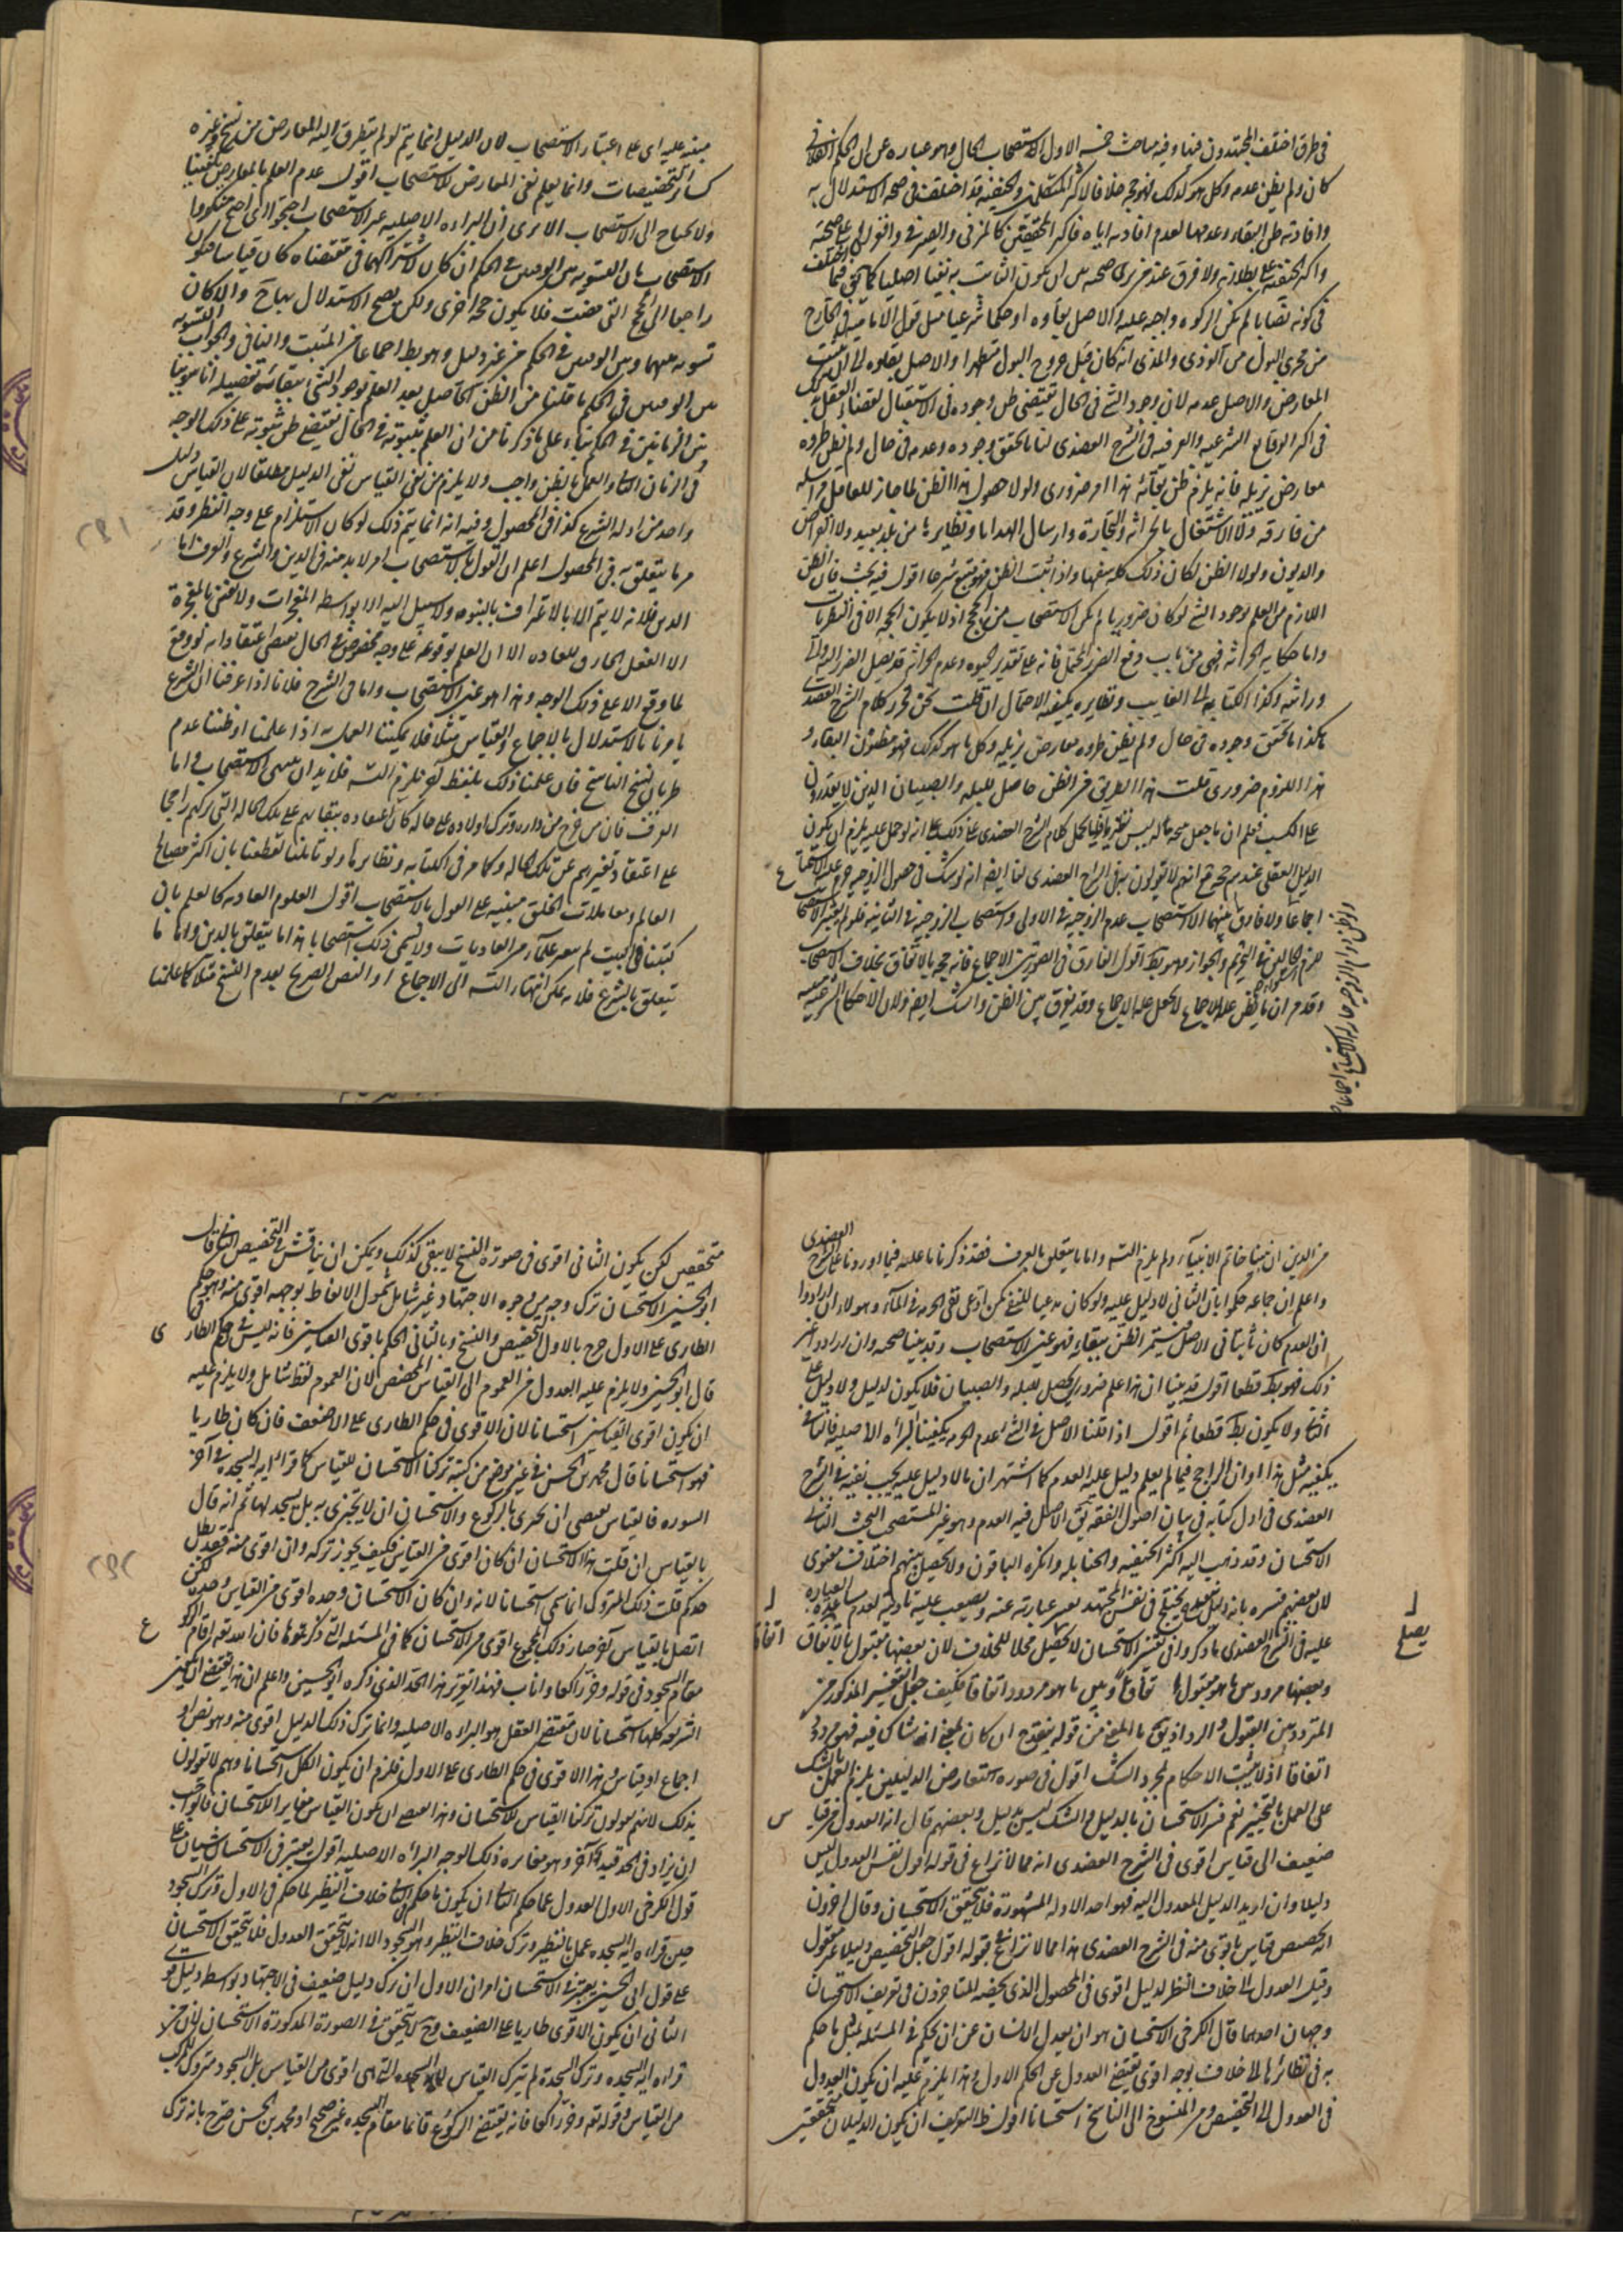 في طرق اختلف المجتهدون فيها وفيه مباحث خمسة الاول الاستصحاب الحال وهو عبارة عن ان الحكم الفلاني
كان ولم يظن عدمه وكل ما هو كذلك فهو حجة خلافا لاكثر المتكلمين والحنفية قد اختلف في صحة الاستدلال به
وافادته ظن البقاء وعدمها لعدم افادته اياه فاكثر المحققين كالمزني والصيرفي والغزالي على صحته
واكثر الحنفية على بطلانه ولا فرق عند من يرى صحته بين ان يكون الثابت به نفيا اصليا كما يقال فيما اختلف
في كونه نصابا لم تكن الزكوة واجبة عليه والاصل بقاؤه او حكما شرعيا مثل قول الامامية في الخارج
من مجرى البول من الوذي والمذي انه كان قبل خروج البول متطهرا والاصل بقاؤه الى ان يثبت
المعارض والاصل عدمه لان وجود الشئ في الحال يقتضي ظن وجوده في الاستقبال لقضاء العقل بذلك
في اكثر الوقايع الشرعية والعرفية في الشرح العضدي لنا ما تحقق وجوده وعدمه في حال ولم يظن طروه
معارض يزيله فانه يلزم ظن بقائه هذا امر ضروري ولولا حصول هذا الظن لما جاز للعاقل مراسلة
من فارقه ولا الاشتغال بالحراثة والتجارة وارسال الهدايا ونظايرها من بلد بعيد ولا القراض
والديون ولولا الظن لكان ذلك كله سفها واذا ثبت الظن فهو متبع شرعا اقول فيه بحث فان الظن
اللازم من العلم بوجود الشئ لو كان ضروريا لم يكن الاستصحاب من الحجج اذ لا يكون الحجة الا في النظريات
واما حكاية الحراثة فهي من باب دفع الضرر المحتمل فانه على تقدير الحيوة وعدم الحراثة قد يصل الضرر اليه والى
وراثه وكذا الكتابة الى الغايب ونظايره يكفيه الاحتمال ان قلت نحن نحرر كلام الشرح العضدي
هكذا ما تحقق وجوده في حال ولم يظن طروه معارض يزيله وكل ما هو كذلك فهو مظنون البقاء و
هذا اللزوم ضروري قلت هذا الطريق من الظن حاصل للبله والصبيان الذين لا يقدرون
على الكسب فعلم ان ما جعل حجة ما له ليس نظريا فلا يحمل كلام الشرح العضدي على ذلك على انه لو حمل عليه يلزم ان يكون
الدليل العقلي عندهم حجة مع انهم لا يقولون به في الشرح العضدي لنا ايضا انه لو شك في حصول الزوجية حرم عليه الاستمتاع
اجماعا ولا فارق بينهما الا استصحاب عدم الزوجية في الاولى واستصحاب الزوجية في الثانية فلو لم يعتبر الاستصحاب
لزم الحكم في التحريم والجواز وهو بط اقول الفارق في الصورتين الاجماع فانه حجة بالاتفاق بخلاف الاستصحاب
وقد مر ان ما يظن علة الاجماع لا يحصل حجة الاجماع وقد يفرق بين الظن والشك ايضا ولان الاحكام الشرعية
ولو ظن دوام الزوجية جاز له الاستمتاع اجماعا
مبنية عليه اي على اعتبار الاستصحاب لان الدليل انما يتم لو لم يتطرق اليه المعارض من نسخ وغيره
كساير التخصيصات وانما يعلم نفي المعارض للاستصحاب اقول عدم العلم بالمعارض يكفينا
ولا يحتاج الى الاستصحاب الا يرى ان البراءة الاصلية غير الاستصحاب احتجوا اي احتج منكروا
الاستصحاب بان التسوية بين الوقتين في الحكم ان كان لاشتراكهما في مقتضاه كان قياسا فيكون
راجعا الى الحجج التي مضت فلا يكون حجة اخرى ولكن يصح الاستدلال بها ح والا كان
تسوية بينهما وبين الوقتين في الحكم من غير دليل وهو بط اجماعا من المثبت والنافي والجواب التسوية
بين الوقتين في الحكم ما قلنا من الظن الحاصل بعد العلم بوجود الشئ ببقائه تفصيله انا سوينا
بين الزمانين في الحكم بناء على ما ذكرنا من ان العلم بثبوته في الحال يقتضي ظن ثبوته على ذلك الوجه
في الزمان الثاني والعمل بالظن واجب ولا يلزم من نفي القياس نفي الدليل مطلقا لان القياس دليل
واحد من ادلة الشرع كذا في المحصول وفيه انه انما يتم ذلك لو كان الاستلزام على وجه النظر وقد
مر ما يتعلق به في المحصول اعلم ان القول بالاستصحاب امر لا بد منه في الدين والشرع والعرف اما
الدين فلانه لا يتم الا بالاعتراف بالنبوة ولا سبيل اليه الا بواسطة المعجزات ولا معنى للمعجزة
الا الفعل الخارق للعادة الا ان العلم بوقوعه على وجه مخصوص في الحال يقتضي اعتقاد انه لو وقع
لما وقع الا على ذلك الوجه وهذا هو عين الاستصحاب واما في الشرع فلانا اذا عرفنا ان الشرع
يامرنا بالاستدلال بالاجماع والقياس مثلا فلا يمكننا العمل به الا اذا علمنا او ظننا عدم
طريان النسخ الناسخ فان علمنا ذلك بلفظ آخر يلزم التسلسل فلا بد ان ينتهي الاستصحاب واما
العرف فان من خرج من داره وترك اولاده على حالة كان اعتقاده ببقائهم على تلك الحالة التي تركهم راجحا
على اعتقاد تغيرهم عن تلك الحالة وكما مر في الكتابة ونظايرها ولو تاملنا لقطعنا بان اكثر مصالح
العالم ومعاملات الخلق مبنية على القول بالاستصحاب اقول العلوم العادية كالعلم بان
كتبنا في البيت لم تصر علماء من العاديات ولا يسمى ذلك استصحابا هذا ما يتعلق بالدين واما ما
يتعلق بالشرع فلانه يمكن انتهاء التسلسل الى الاجماع او النص الصريح بعدم النسخ مثلا كما علمنا
من الدين ان نبينا خاتم الانبياء ولم يلزم التسلسل واما ما يتعلق بالعرف فقد ذكرنا ما عليه فيما اوردنا على الشرح العضدي
واعلم ان جماعة حكموا بان الثاني لا دليل عليه ولو كان مدعيا للنفي كمن ادعى نفي الحرمة في الماء وهؤلاء ان ارادوا
ان العدم كان ثابتا في الاصل فيستمر الظن ببقائه فهو عين الاستصحاب وقد بينا صحته وان ارادوا غير
ذلك فهو بط قطعا اقول قد بينا ان هذا علم ضروري يحصل للبله والصبيان فلا يكون لدليل ولا دليل على
الثاني ولا يكون بط قطعا ثم اقول اذا قلنا الاصل في الشئ عدم الحرمة يكفينا البراءة الاصلية فالثاني
يكفيه مثل هذا او ان الراجح فيما لم يعلم دليل عليه العدم كما اشتهر ان ما لا دليل عليه يجب نفيه في الشرح
العضدي في اول كتابه في بيان اصول الفقه يق الاصل فيه العدم وهو غير المستصحب البحث الثاني
الاستحسان وقد ذهب اليه اكثر الحنفية والحنابلة وانكره الباقون ولا يحصل بينهم اختلاف معنوي
لان بعضهم فسره بانه دليل ينقدح في نفس المجتهد تعسر عبارته عنه ويصعب عليه تاديته لعدم مساعدة العبارة
عليه في الشرح العضدي ما ذكروا في تفسير الاستحسان لا يصلح محلا للخلاف لان بعضها مقبول بالاتفاق
وبعضها مردود بين ما هو مقبول اتفاقا وبين ما هو مردود اتفاقا فكيف جعل التفسير المذكور من
المتردد بين القبول والرد اذ يق ما المعني من قوله ينقدح ان كان بمعنى انه شاك فيه فهو مردود
اتفاقا اذ لا يثبت الاحكام بمجرد الشك اقول في صورة تعارض الدليلين يلزم العمل بالشك
على العمل بالتخيير نعم فسر الاستحسان بالدليل والشك ليس بدليل وبعضهم قال انه العدول من قياس
ضعيف الى قياس اقوى في الشرح العضدي انه مما لا نزاع في قوله اقول نفس العدول ليس
دليلا وان اريد الدليل المعدول اليه فهو احد الادلة المشهورة فلا يتحقق الاستحسان وقال اخرون
انه تخصيص قياس باقوى منه في الشرح العضدي هذا مما لا نزاع في قبوله اقول جعل التخصيص دليلا غير معقول
وقيل العدول الى خلاف النظر لدليل اقوى في المحصول الذي يحصه المتاخرون في تعريف الاستحسان
وجهان احدهما قال الكرخي الاستحسان هو ان يعدل الانسان عن ان يحكم في المسئلة بمثل ما حكم
به في نظائرها الى خلافه بوجه اقوى يقتضي العدول عن الحكم الاول وهذا يلزم عليه ان يكون العدول
في العدول الى التخصيص ومن المنسوخ الى الناسخ استحسانا اقول ظ التعريف ان يكون الدليلان متحققين
يصلح
اتفاقا
متحققين لكن يكون الثاني اقوى في صورة النسخ لا يبقى كذلك ويمكن ان يناقش في التخصيص الثاني قال
ابو الحسين الاستحسان ترك وجه من وجوه الاجتهاد غير شامل شمول الالفاظ بوجه اقوى منه وهو في حكم
الطاري على الاول خرج بالاول التخصيص والنسخ وبالثاني الحكم باقوى القياسين فانه ليس في حكم الطاري
قال ابو الحسين ولا يلزم عليه العدول من العموم الى القياس المخصص لان العموم لفظ شامل ولا يلزم عليه
ان يكون اقوى القياسين استحسانا لان الاقوى في حكم الطاري على الاضعف فان كان طاريا
فهو استحسانا قال محمد بن الحسن في غير موضع من كتبه تركنا الاستحسان للقياس كما قرأ اية السجدة في آخر
السورة فالقياس يقتضي ان يجزي بالركوع والاستحسان ان لا يجتزي به بل يسجد لها ثم انه قال
بالقياس ان قلت هذا الاستحسان ان كان اقوى من القياس فكيف يجوز تركه وان اقوى منه فقد بطل
حدكم قلت ذلك المتروك انما سمي استحسانا لانه وان كان الاستحسان وحده اقوى من القياس وحده لكن
اتصل بالقياس آخر صار ذلك المجموع اقوى من الاستحسان كما في المسئلة التي ذكرتموها فان الله تعه اقام الركوع
مقام السجود في قوله وخر راكعا واناب فهذا تقرير هذا الحد الذي ذكره ابو الحسين واعلم ان هذا يقتضي ان يكون
الشريعة كلها استحسانا لان مقتضى العقل هو البراءة الاصلية وانما ترك ذلك الدليل اقوى منه وهو نص او
اجماع او قياس وهذا الاقوى في حكم الطاري على الاول فلزم ان يكون الكل استحسانا وهم لا يقولون
بذلك لانهم يقولون تركنا القياس للاستحسان وهذا يقتضي ان يكون القياس مغايرا للاستحسان فالواجب
ان يزاد في الحد قيد آخر وهو مغايرة ذلك الوجه البراءة الاصلية اقول يعتبر في الاستحسان شيئان على
قول الكرخي الاول العدول عما حكم الثاني ان يكون ما حكم الثاني خلاف النظير لما حكم في الاول وترك السجود
حين قراءة اية السجدة عمل بالنظير وترك خلاف النظير وهو السجود الا انه لا يتحقق العدول فلا يتحقق الاستحسان
على قول ابي الحسين يعتبر في الاستحسان امران الاول ان ترك دليل ضعيف في الاجتهاد بواسطة دليل قوي
الثاني ان يكون الاقوى طاريا على الضعيف وح لا يتحقق في الصورة المذكورة الاستحسان لان من
قراءة اية السجدة وترك السجدة لم يترك القياس للسجدة التي هي اقوى من القياس بل السجود متروك المركب
من القياس وقوله تعه وخر راكعا فانه يقتضي الركوع قائما مقام السجدة غير صحيح او محمد بن الحسن صرح بانه ترك